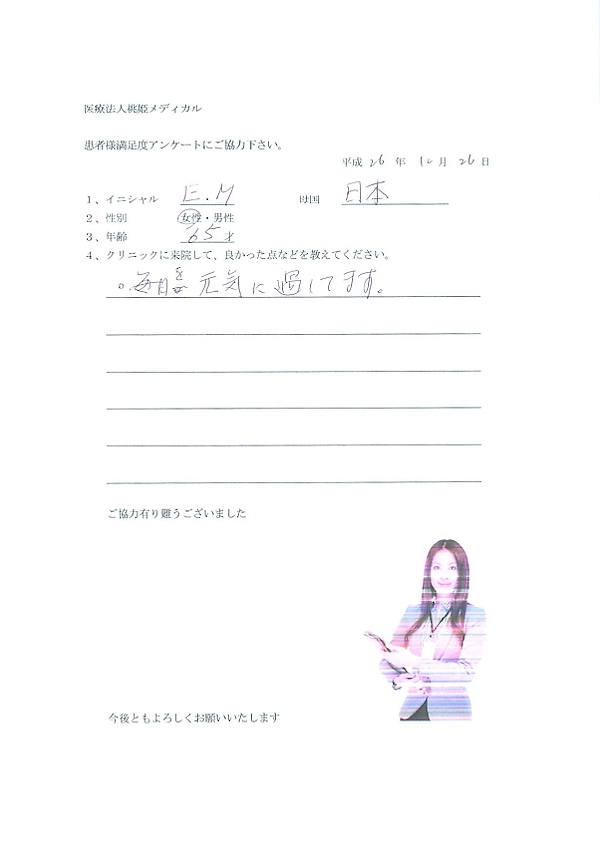 医療法人桃姫メディカル
患者様満足度アンケートにご協力下さい。
平成 26 年 12 月 26 日
1、イニシャル E.M 母国 日本
2、性別 女性・男性
3、年齢 65才
4、クリニックに来院して、良かった点などを教えてください。
。毎日を元気に過してます。
ご協力有り難うございました
今後ともよろしくお願いいたします